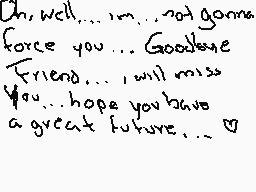 Oh, well... im... not gonna
force you... Goodbye
Friend... i will miss
You... hope you have
a great future... ♡